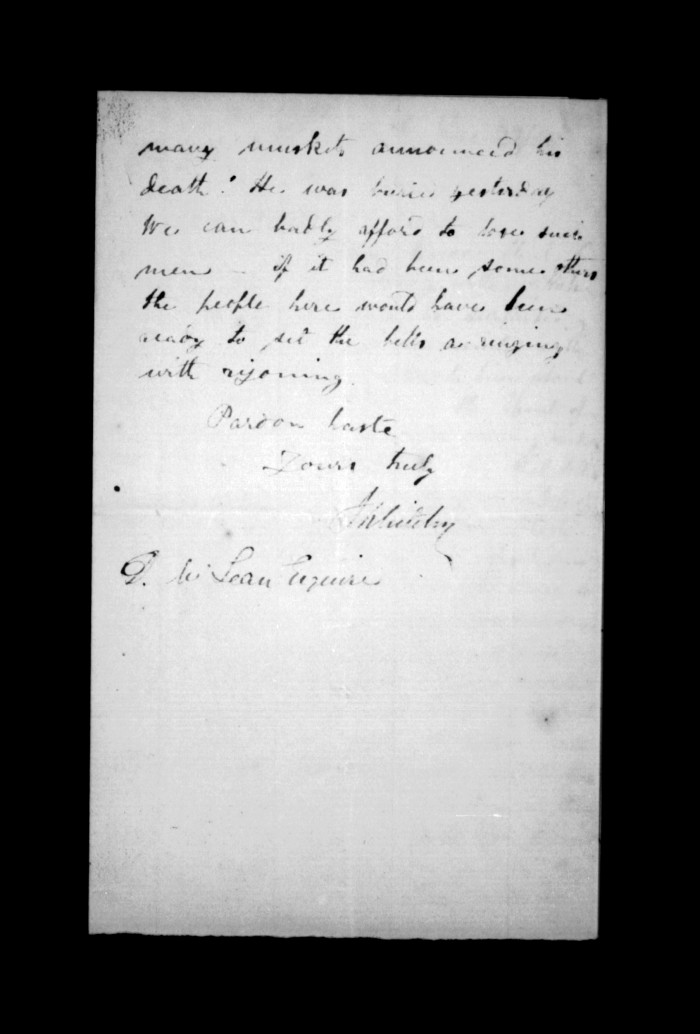 many muskets announced his
death. He was buried yesterday
We can badly afford to lose such
men - if it had been some others
the people here would have been
ready to set the bells a ringing
with rejoining.
Pardon haste
Yours truly
D. McLean Esquire